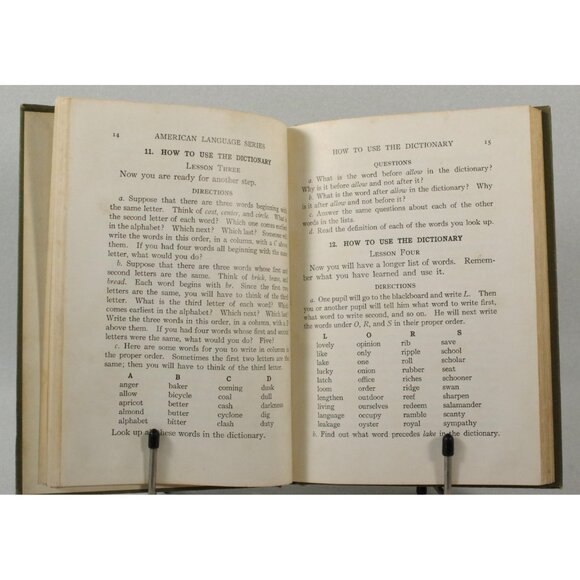 14 AMERICAN LANGUAGE SERIES
11. HOW TO USE THE DICTIONARY
LESSON THREE
Now you are ready for another step.
DIRECTIONS
a. Suppose that there are three words beginning with
the same letter. Think of cent, center, and circle. What
the second letter of each word? Which one comes earliest
in the alphabet? Which next? Which last? Someone will
write the words in this order, in a column, with a C above
them. If you had four words all beginning with the same
letter, what would you do?
b. Suppose that there are three words whose first and
second letters are the same. Think of brick, brave, and
bread. Each word begins with br. Since the first two
letters are the same, you will have to think of the third
letter. What is the third letter of each word? Which
comes earliest in the alphabet? Which next? Which last?
Write the three words in this order, in a column, with a B
above them. If you had four words whose first and second
letters were the same, what would you do? Five?
c. Here are some words for you to write in columns in
the proper order. Sometimes the first two letters are the
same; then you will have to think of the third letter.
A B C D
anger baker coming dusk
allow bicycle coal dull
apricot better cash darkness
almond butter cyclone dig
alphabet bitter clash duty
Look up all these words in the dictionary.
HOW TO USE THE DICTIONARY 15
QUESTIONS
a. What is the word before allow in the dictionary?
Why is it before allow and not after it?
b. What is the word after allow in the dictionary? Why
is it after allow and not before it?
c. Answer the same questions about each of the other
words in the lists.
d. Read the definition of each of the words you look up.
12. HOW TO USE THE DICTIONARY
LESSON FOUR
Now you will have a longer list of words. Remem-
ber what you have learned and use it.
DIRECTIONS
a. One pupil will go to the blackboard and write L. Then
you or another pupil will tell him what to write first,
what word to write second, and so on. He will next write
the words under O, R, and S in their proper order.
L O R S
lovely opinion rib save
like only ripple school
late one roll scholar
lucky onion rubber seat
latch office riches schooner
loom order ridge swan
lengthen outdoor reef sharpen
living ourselves redeem salamander
language occupy ramble scanty
leakage oyster royal sympathy
b. Find out what word precedes lake in the dictionary.